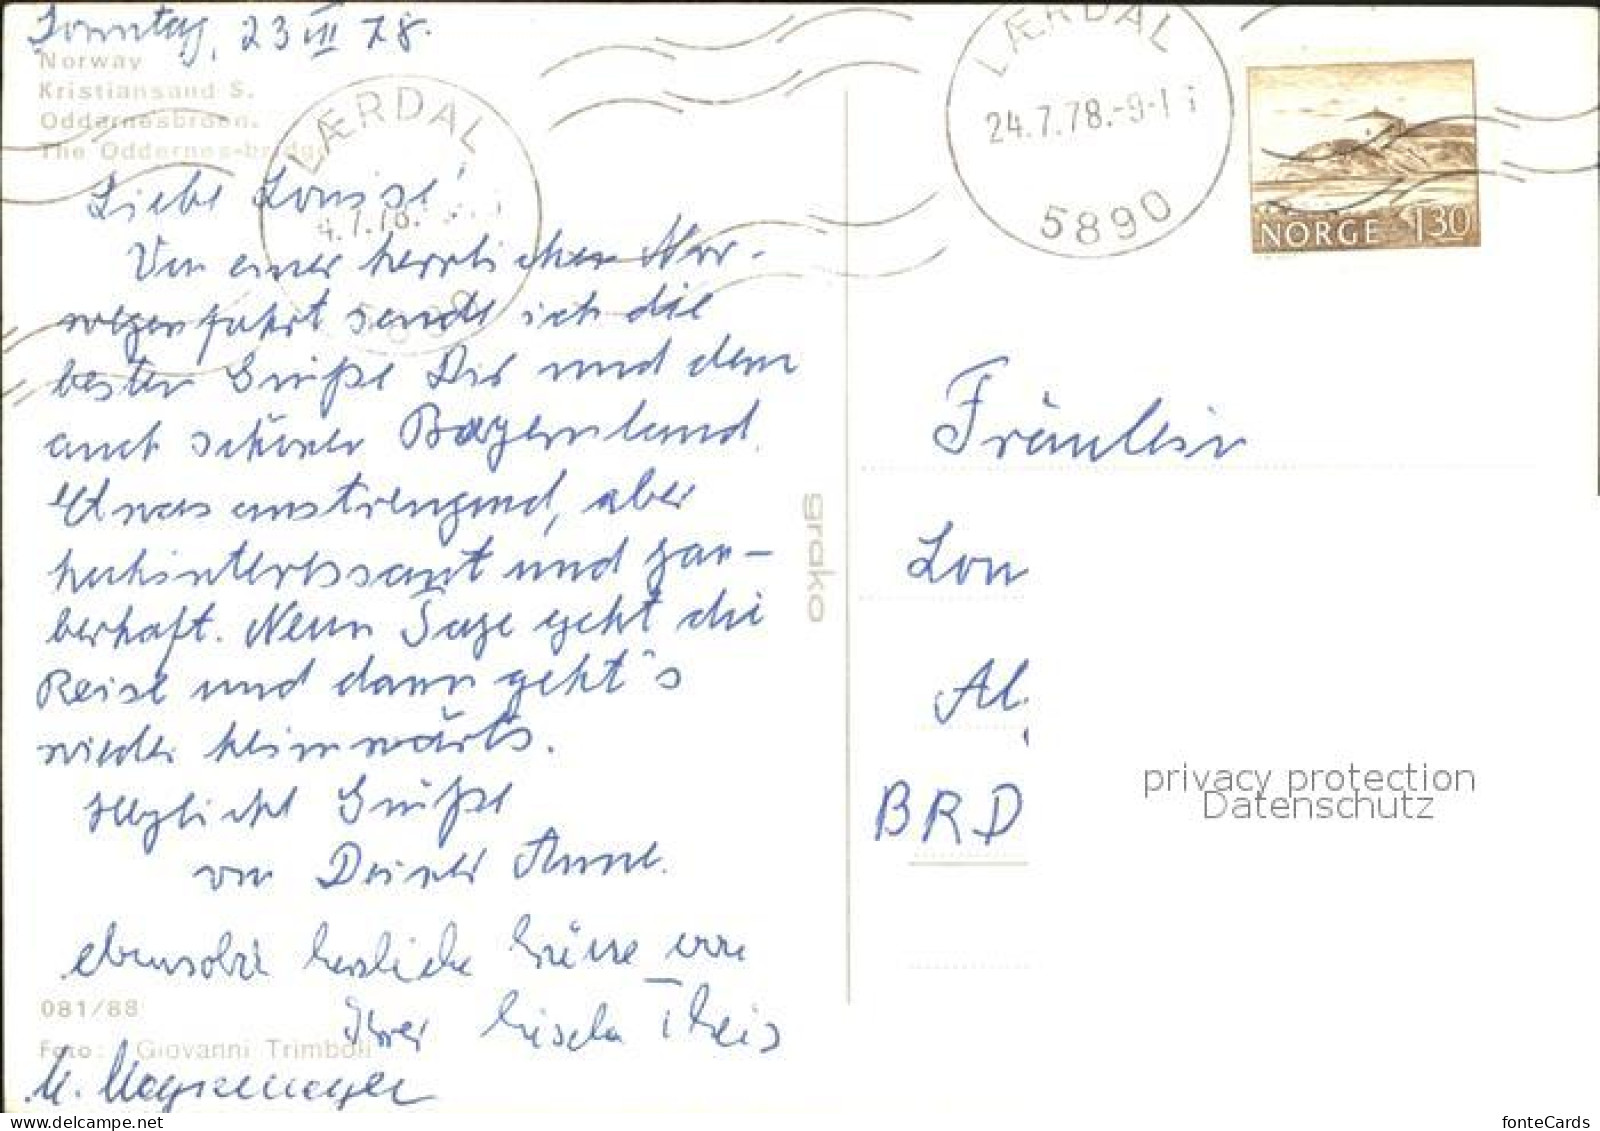 Sonntag, 23 VII 78.
Norway
Kristiansand S.
Oddernesbroen.
The Oddernes-bridge
LÆRDAL
4.7.78.
LÆRDAL
24.7.78.-9-1
5890
NORGE 130
Liebe Louise!
Von einer herrlichen Nor-
wegenfahrt sende ich die
besten Grüße Dir und dem
auch schönen Bayernland.
Etwas anstrengend, aber
hochinteressant und zau-
berhaft. Neun Tage geht die
Reise und dann geht's
wieder heimwärts.
Herzliche Grüße
von Deiner Anne.
ebenso herzliche Grüsse
Ihrer Gisela Theis
081/88
Foto: Giovanni Trimboli
M.
grako
Fräulein
Lou
Al
BRD
privacy protection
Datenschutz
www.delcampe.net
fonteCards